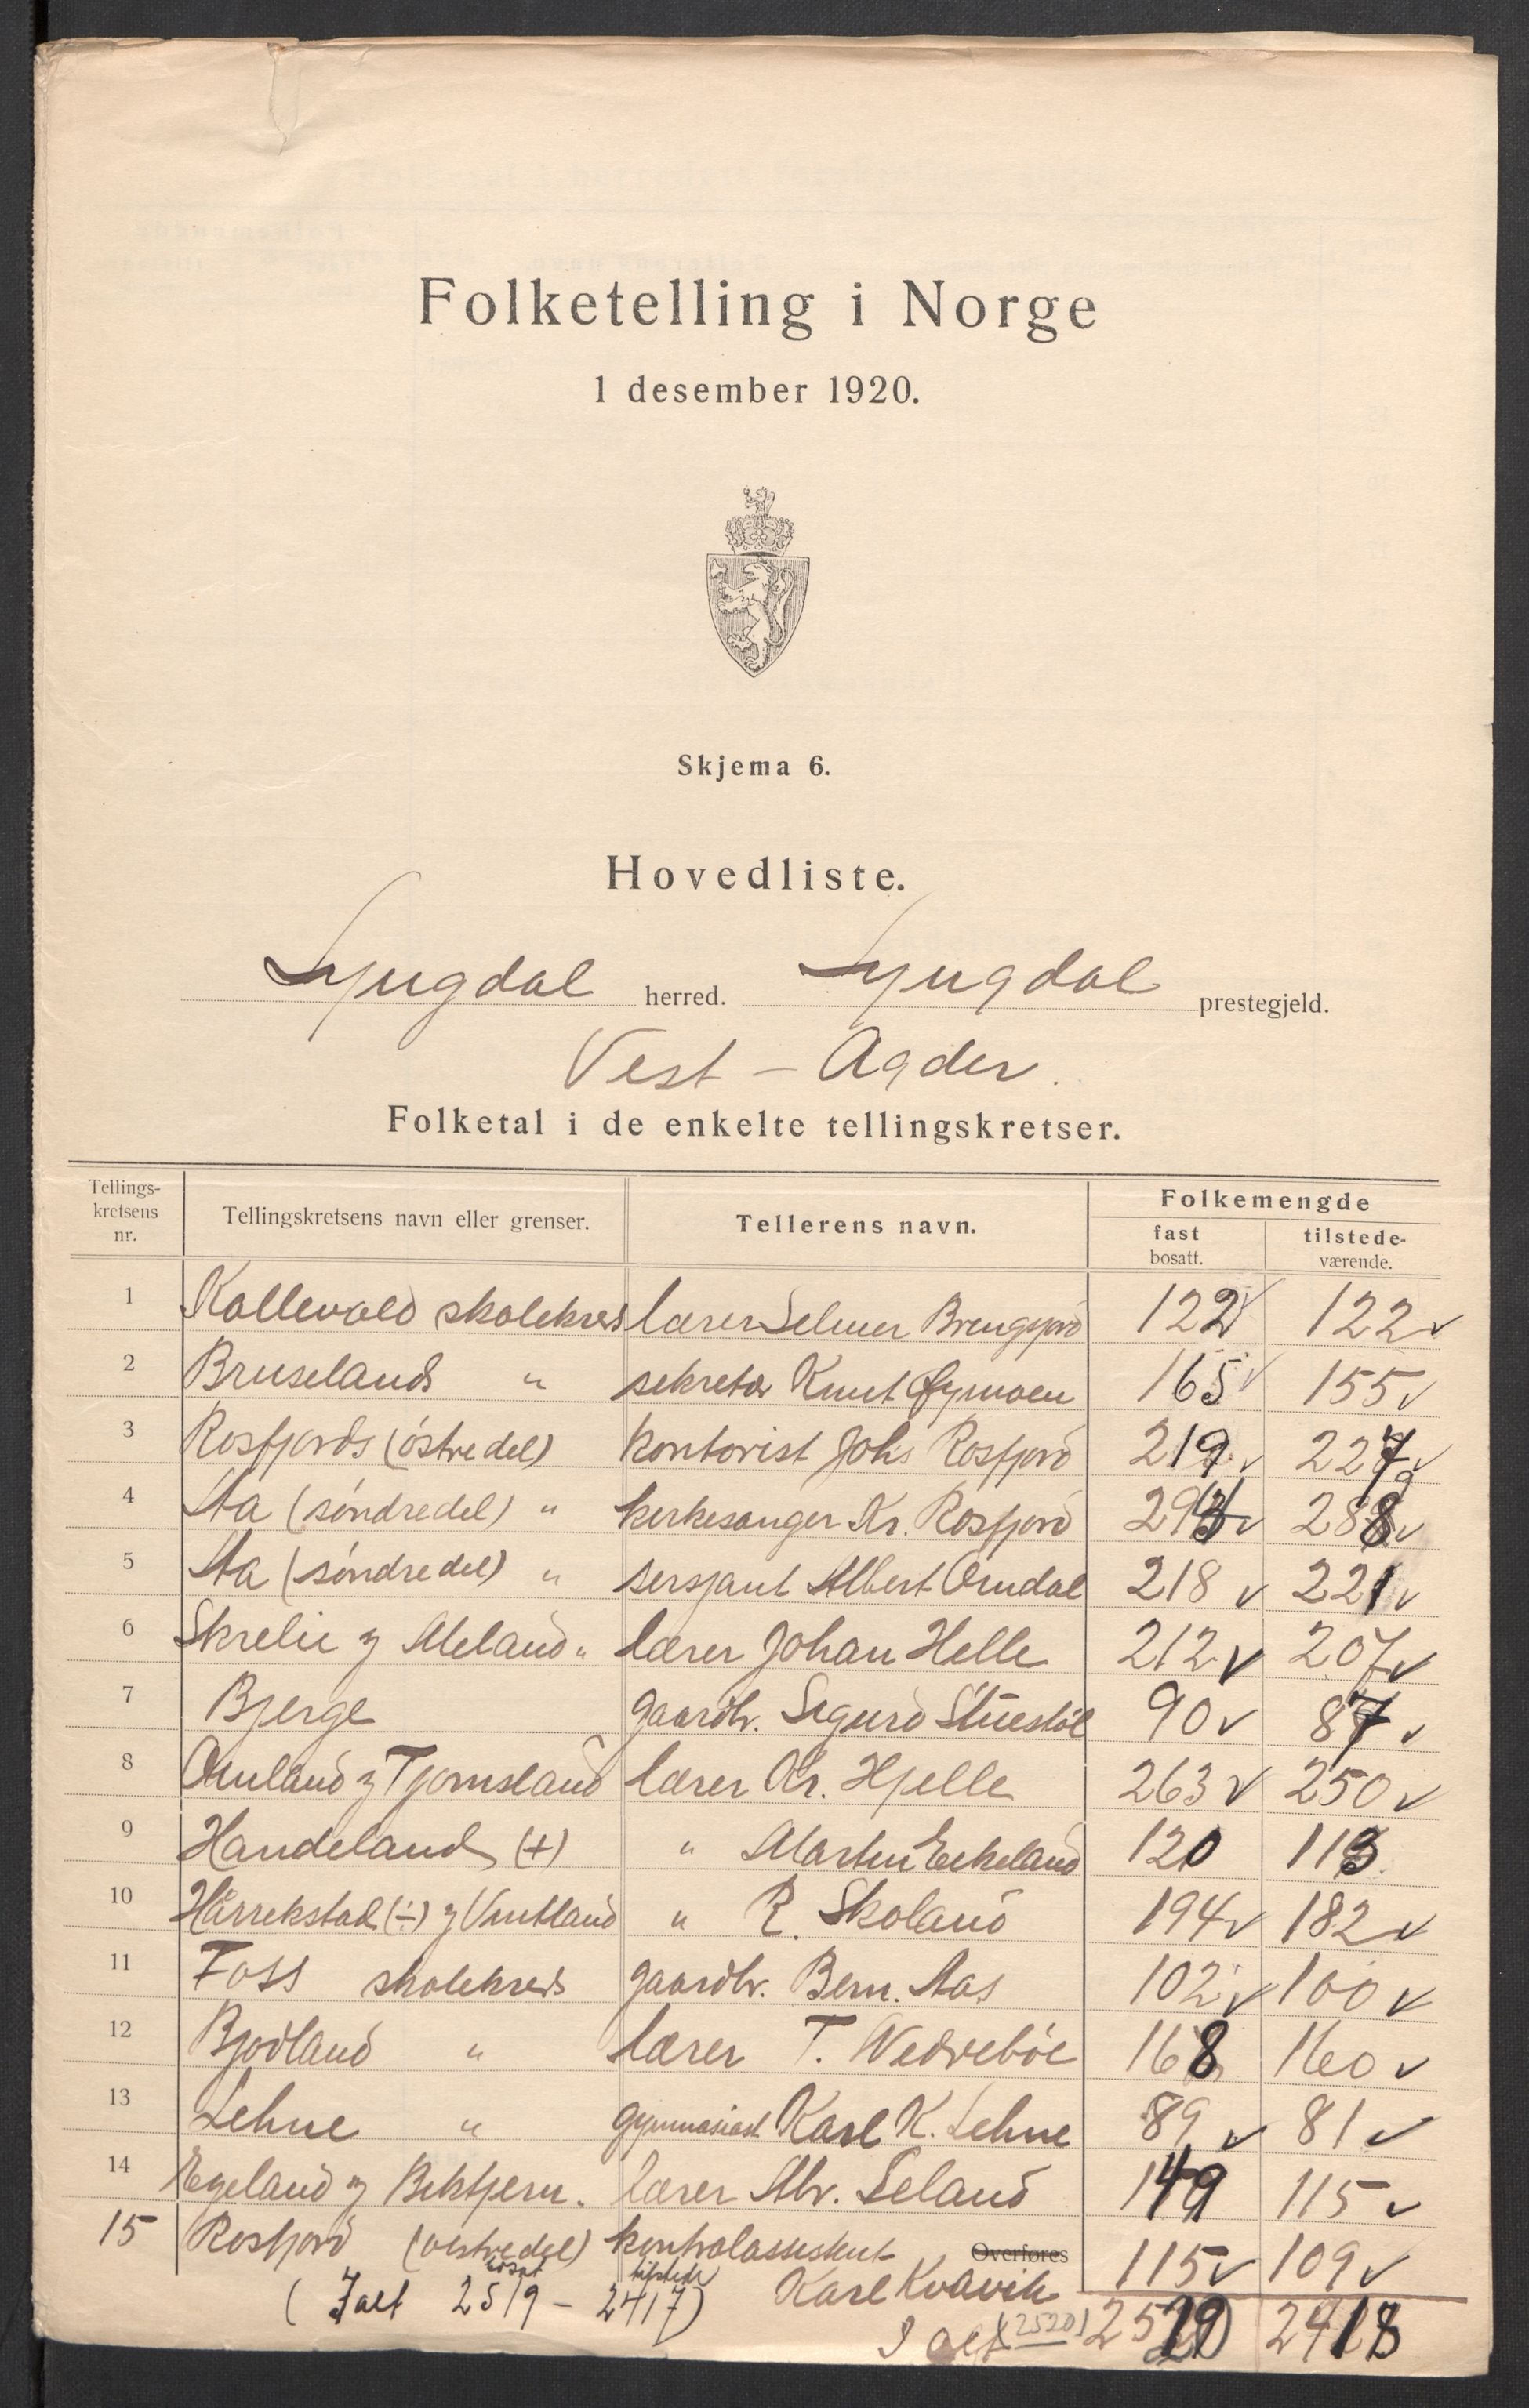 Folketelling i Norge
1 desember 1920.
Skjema 6.
Hovedliste.
Lyngdal herred. Lyngdal prestegjeld.
Vest-Agder.
Folketal i de enkelte tellingskretser.
Tellings-kretsens nr. Tellingskretsens navn eller grenser. Tellerens navn. Folkemengde
fast bosatt. tilstede-værende.
1 Kallevold skolekreds lærer Selmer 122 122
2 Bruselands " sekretær Knut 165 155
3 Rosfjords (östre del) kontorist Johs Rosfjord 219 227
4 Aa (söndre del) " kirkesanger Kr. Rosfjord 288
5 Aa (söndre del) " sersjant Albert Omdal 218 221
6 Skrelie og Meland " lærer Johan Helle 212 207
7 Bjerge gaardbr. Sigurd Stuestöl 90 87
8 Omland og Tjomsland lærer Kr. Hjelle 263 250
9 Handeland (+) " Martin Eikeland 120 113
10 Hårrekstad (÷) og Vintland " R. Skoland 194 182
11 Foss skolekreds gaardbr. Bern. Aas 102 100
12 Bjodland " lærer T. Wedreböe 168 160
13 Lehne " gymnasiast Karl K. Lehne 89 81
14 Egeland og lærer Alv. Seland 149 115
15 Rosfjord (vestre del) kontrolassistent Overføres 115 109
Karl Kvavik
( I alt 2519 bosat - 2417 tilstede)
I alt (2520) 2519 2418